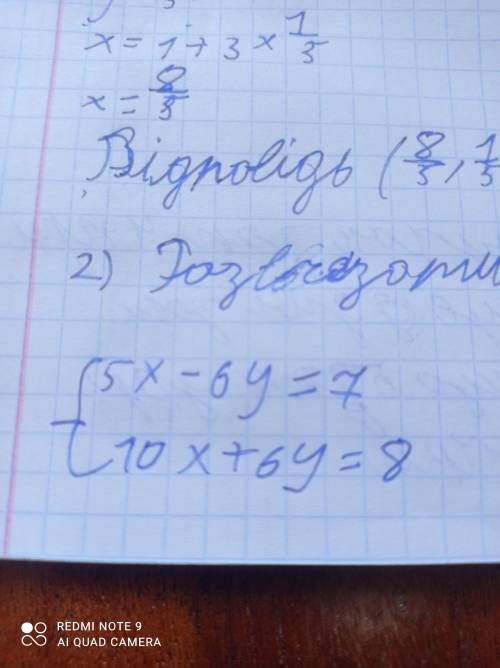 x = 1 + 3 × 1/5
x = 8/5
Відповідь (8/5, 1/5
2)
5x - 6y = 7
10x + 6y = 8
REDMI NOTE 9
AI QUAD CAMERA